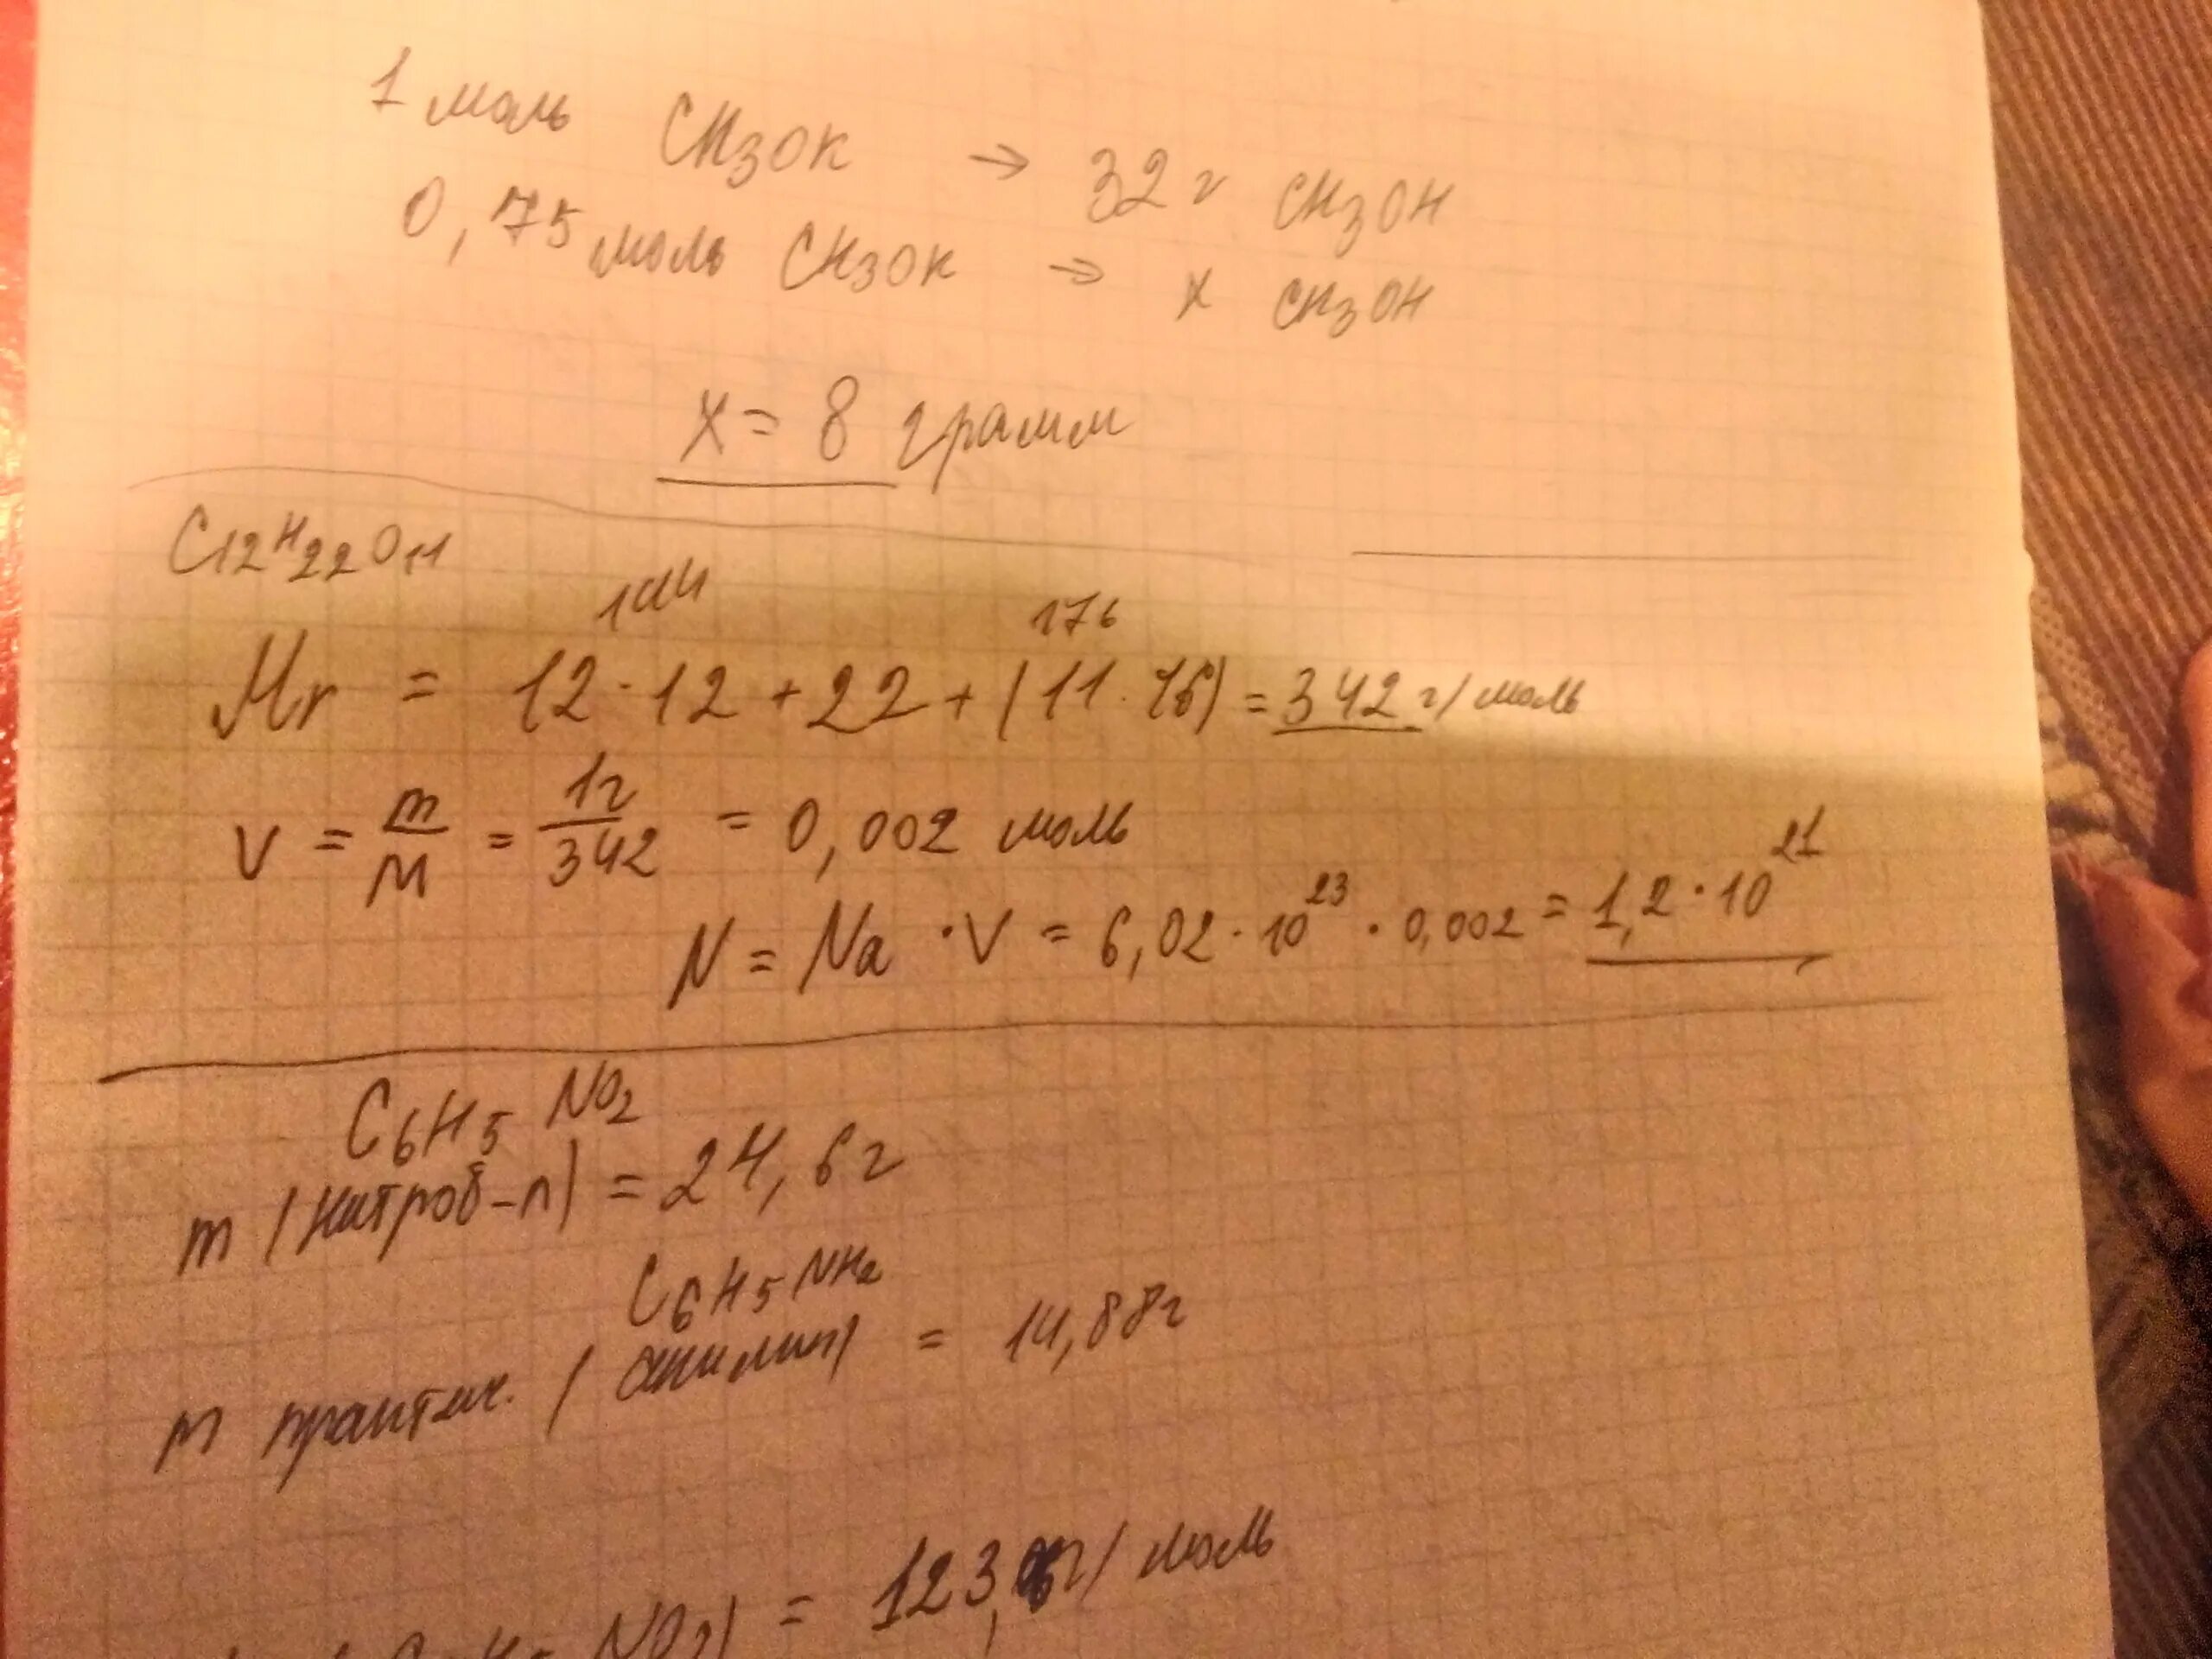 1 моль CH3OK → 32 г CH3OH
0,75 моль CH3OK → x CH3OH
x = 8 грамм
C12H22O11
144 176
Mr = 12·12 + 22 + (11·16) = 342 г/моль
V = m/M = 1г/342 = 0,002 моль
N = Na · V = 6,02·10^23 · 0,002 = 1,2·10^21
C6H5NO2
m (нитроб-л) = 24,6г
C6H5NH2
m практич. (анилин) = 14,88г
NO2) = 123, г/моль